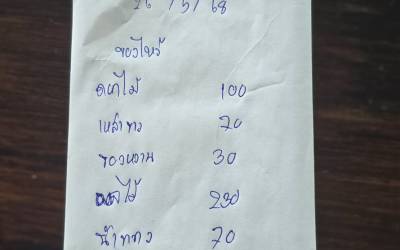 26 / 5 / 68
ของไหว้
ดอกไม้ 100
เหล้าขาว 70
ของหวาน 30
ผลไม้ 230
น้ำขาว 70